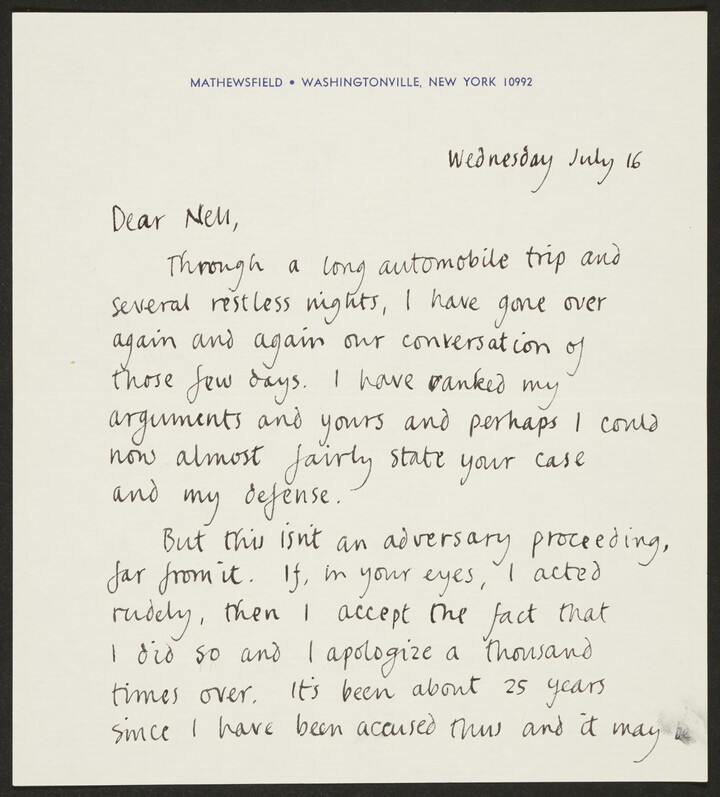 MATHEWSFIELD • WASHINGTONVILLE, NEW YORK 10992
Wednesday July 16
Dear Nell,
Through a long automobile trip and
several restless nights, I have gone over
again and again our conversation of
those few days. I have ranked my
arguments and yours and perhaps I could
now almost fairly state your case
and my defense.
But this isn't an adversary proceeding,
far from it. If, in your eyes, I acted
rudely, then I accept the fact that
I did so and I apologize a thousand
times over. It's been about 25 years
since I have been accused thus and it may be